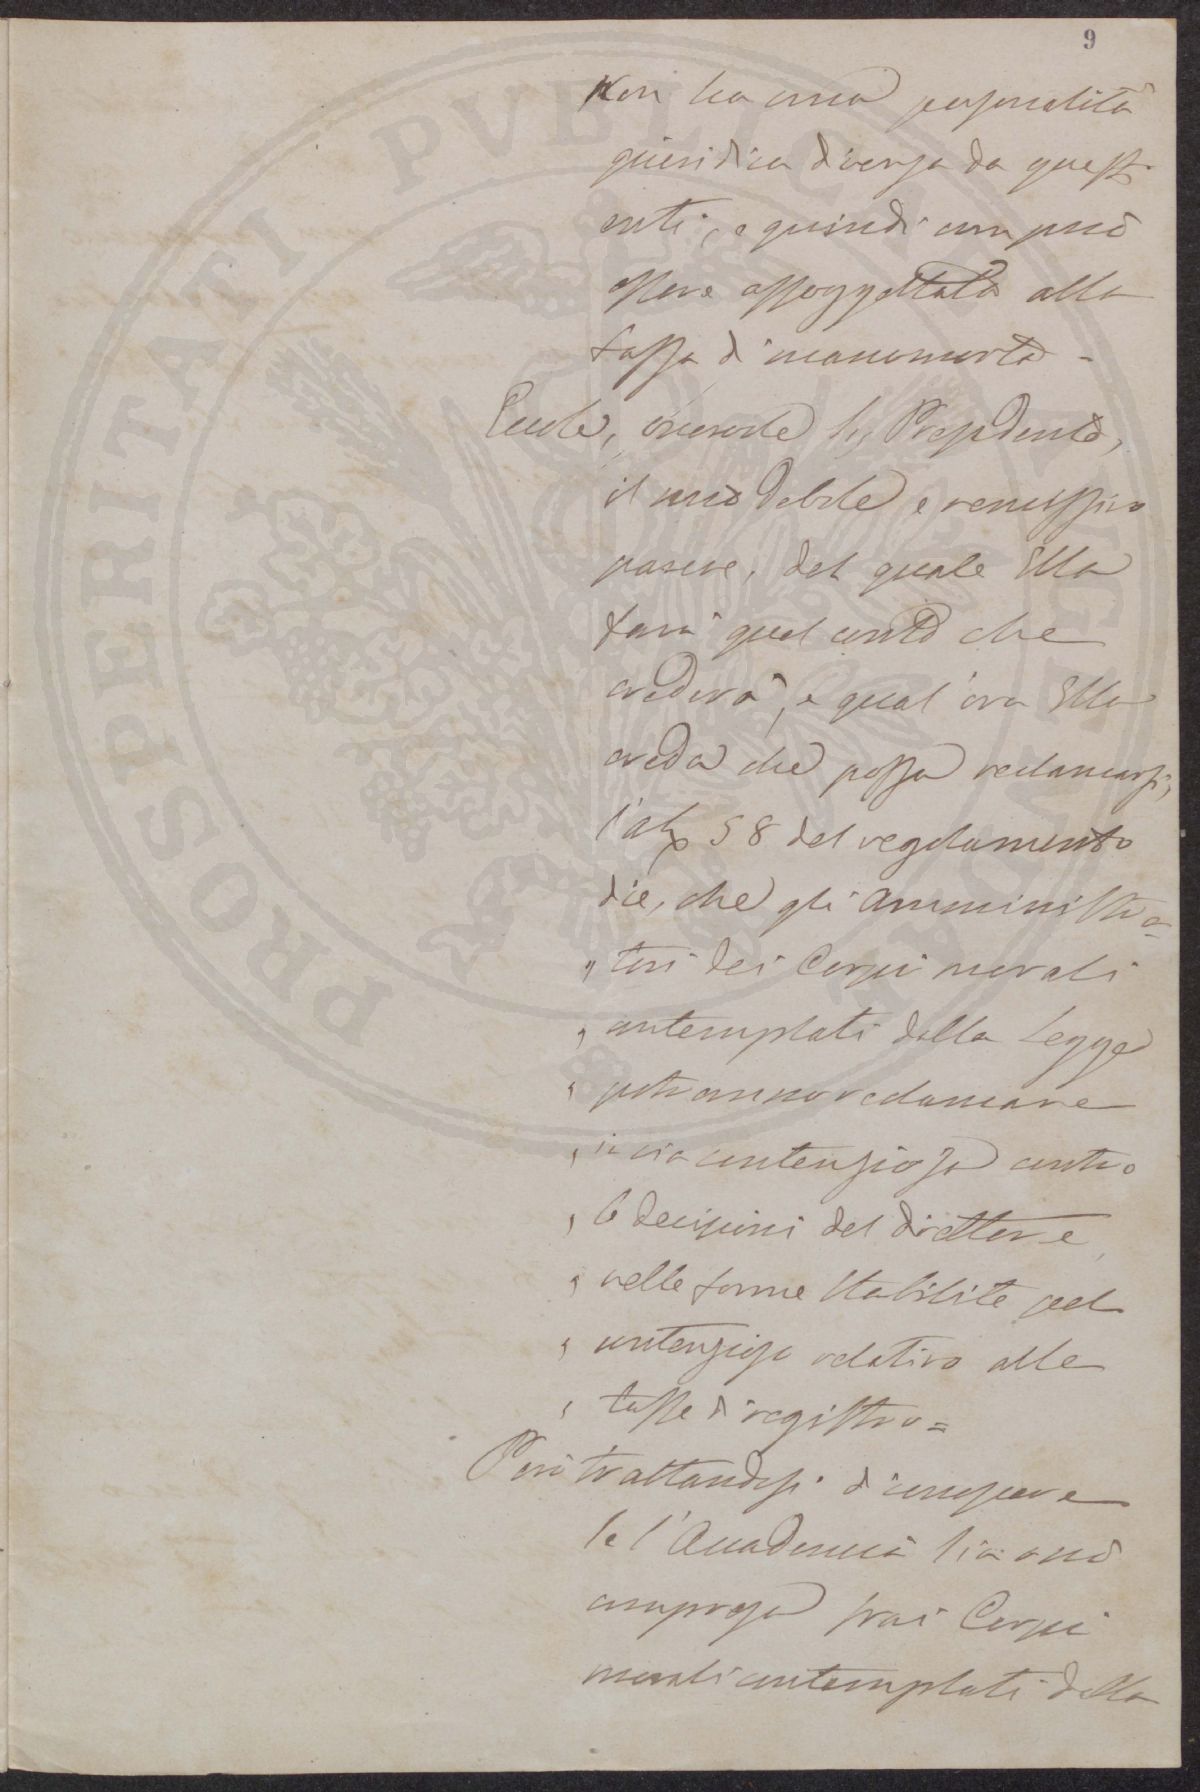 9
Non ha una personalità
giuridica diversa da questi
enti, e quindi non può
essere assoggettata alla
tassa di manomorta -
Eccole, onorevole Sig. Presidente,
il mio debole e remissivo
parere, del quale Ella
farà quel conto che
crederà, e qual'ora Ella
creda che possa reclamarsi,
l'art 58 del regolamento
dice, che gli amministra=
" tori dei Corpi morali
" contemplati dalla Legge
" potranno reclamare
" in via contenziosa contro
" le decisioni del direttore
" nelle forme stabilite pel
" contenzioso relativo alle
" tasse di registro =
Però trattandosi di conoscere
se l'Accademia sia o nò
compresa frai Corpi
morali contemplati dalla
PROSPERITATI PVBLICAE AVGENDAE